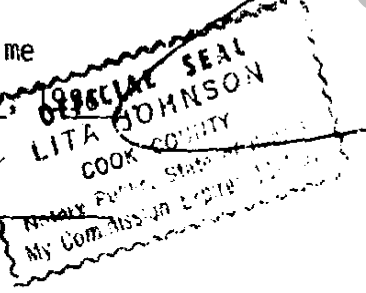 me
OFFICIAL SEAL
LITA JOHNSON
COOK COUNTY
Notary Public, State of
My Commission Expires